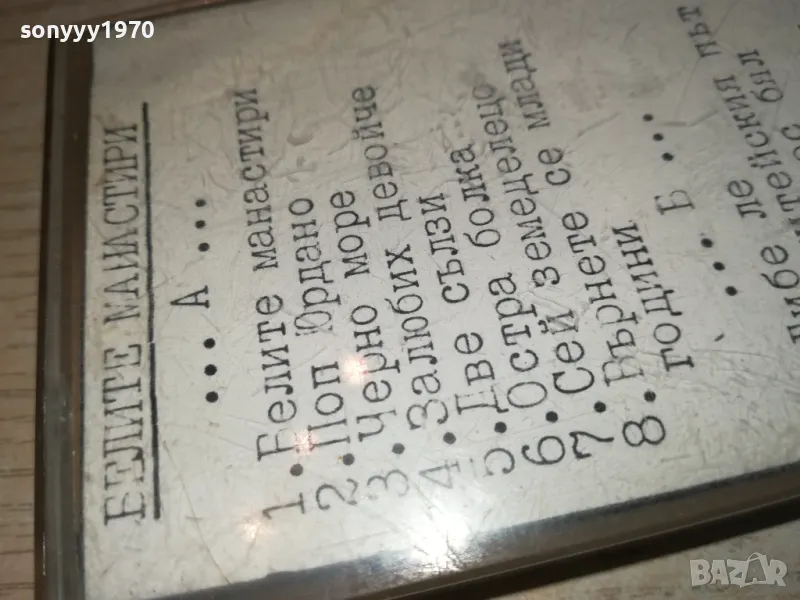 sonyyy1970
БЕЛИТЕ МАНАСТИРИ
... А ...
1. Белите манастири
2. Поп Юрдано
3. Черно море
4. Залюбих девойче
5. Две сълзи
6. Остра болка
7. Сей земеделецо
8. Върнете се млади
години
... Б ...
либе ле
житейския път
бял
BAZAR